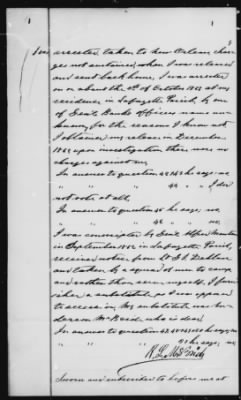 I was arrested taken to New Orleans char-
ges not sustained, when I was released
and sent back home, I was arrested
on or about the 8th of October 1863 at my
residence in Lafayette Parish, by one
of Genl Banks Officers name un-
known, for the reasons I know not
I obtained my release in December
1863 upon investigation there were no
charges against me,
In answer to question he says: no
" " " " " I did
not vote at all,
In answer to question he says, no
" " " " " no
I was conscripted by Genl Alfred Mouton
in September 1862 in Lafayette Parish,
received notice from Lt
and taken by a squad of men to camp
and rather than serve myself, I furnis-
hed a substitute as I was opposed
to secession, My substitute was An-
derson McBride, who is dead
In answer to question he says no
" " " he says,
Sworn and subscribed to before me at